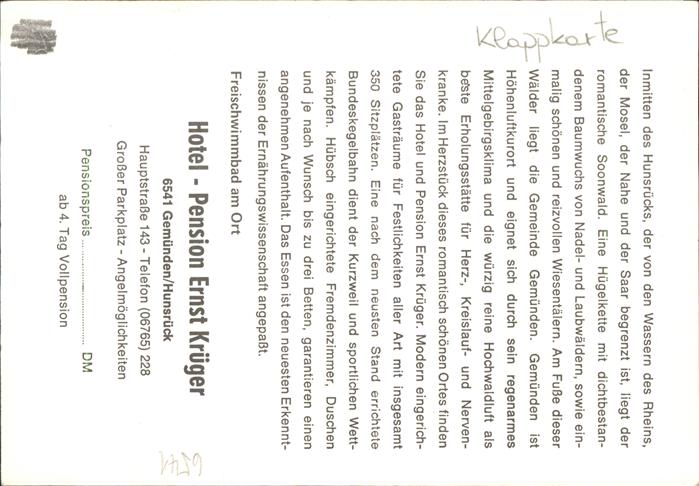 Klappkarte
Inmitten des Hunsrücks, der von den Wassern des Rheins,
der Mosel, der Nahe und der Saar begrenzt ist, liegt der
romantische Soonwald. Eine Hügelkette mit dichtbestan-
denem Baumwuchs von Nadel- und Laubwäldern, sowie ein-
malig schönen und reizvollen Wiesentälern. Am Fuße dieser
Wälder liegt die Gemeinde Gemünden. Gemünden ist
Höhenluftkurort und eignet sich durch sein regenarmes
Mittelgebirgsklima und die würzig reine Hochwaldluft als
beste Erholungsstätte für Herz-, Kreislauf- und Nerven-
kranke. Im Herzstück dieses romantisch schönen Ortes finden
Sie das Hotel und Pension Ernst Krüger. Modern eingerich-
tete Gasträume für Festlichkeiten aller Art mit insgesamt
350 Sitzplätzen. Eine nach dem neusten Stand errichtete
Bundeskegelbahn dient der Kurzweil und sportlichen Wett-
kämpfen. Hübsch eingerichtete Fremdenzimmer, Duschen
und je nach Wunsch bis zu drei Betten, garantieren einen
angenehmen Aufenthalt. Das Essen ist den neuesten Erkennt-
nissen der Ernährungswissenschaft angepaßt.
Freischwimmbad am Ort
Hotel - Pension Ernst Krüger
6541 Gemünden/Hunsrück
Hauptstraße 143 - Telefon (06765) 228
Großer Parkplatz - Angelmöglichkeiten
Pensionspreis ........................ DM
ab 4. Tag Vollpension
6541